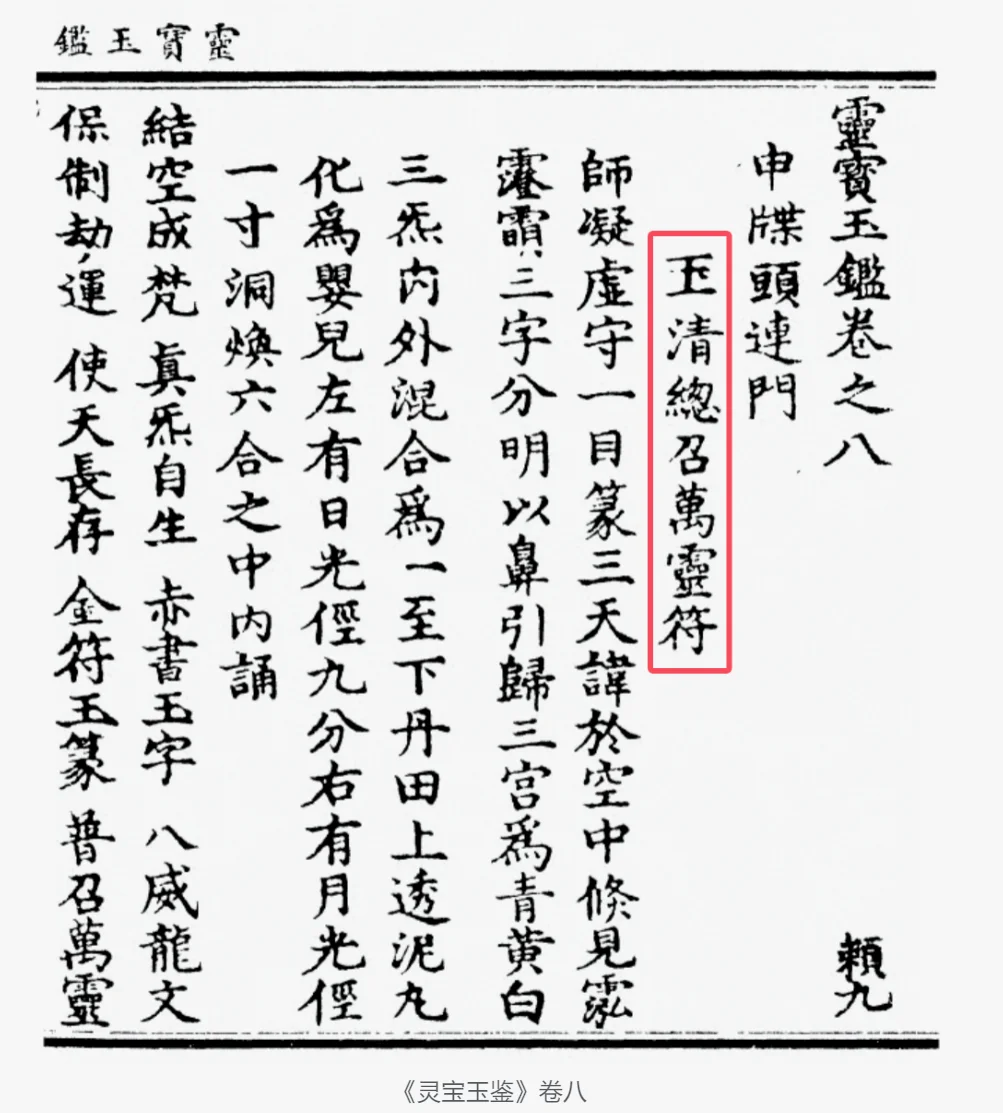 靈寶玉鑑
靈寶玉鑑卷之八 賴九
申牒頭連門
玉清總召萬靈符
師凝虛守一目篆三天諱於空中倏見
三字分明以鼻引歸三宮爲青黃白
三炁內外混合爲一至下丹田上透泥丸
化爲嬰兒左有日光俓九分右有月光俓
一寸洞煥六合之中內誦
結空成梵 眞炁自生 赤書玉字 八威龍文
保制劫運 使天長存 金符玉篆 普召萬靈
《灵宝玉鉴》卷八